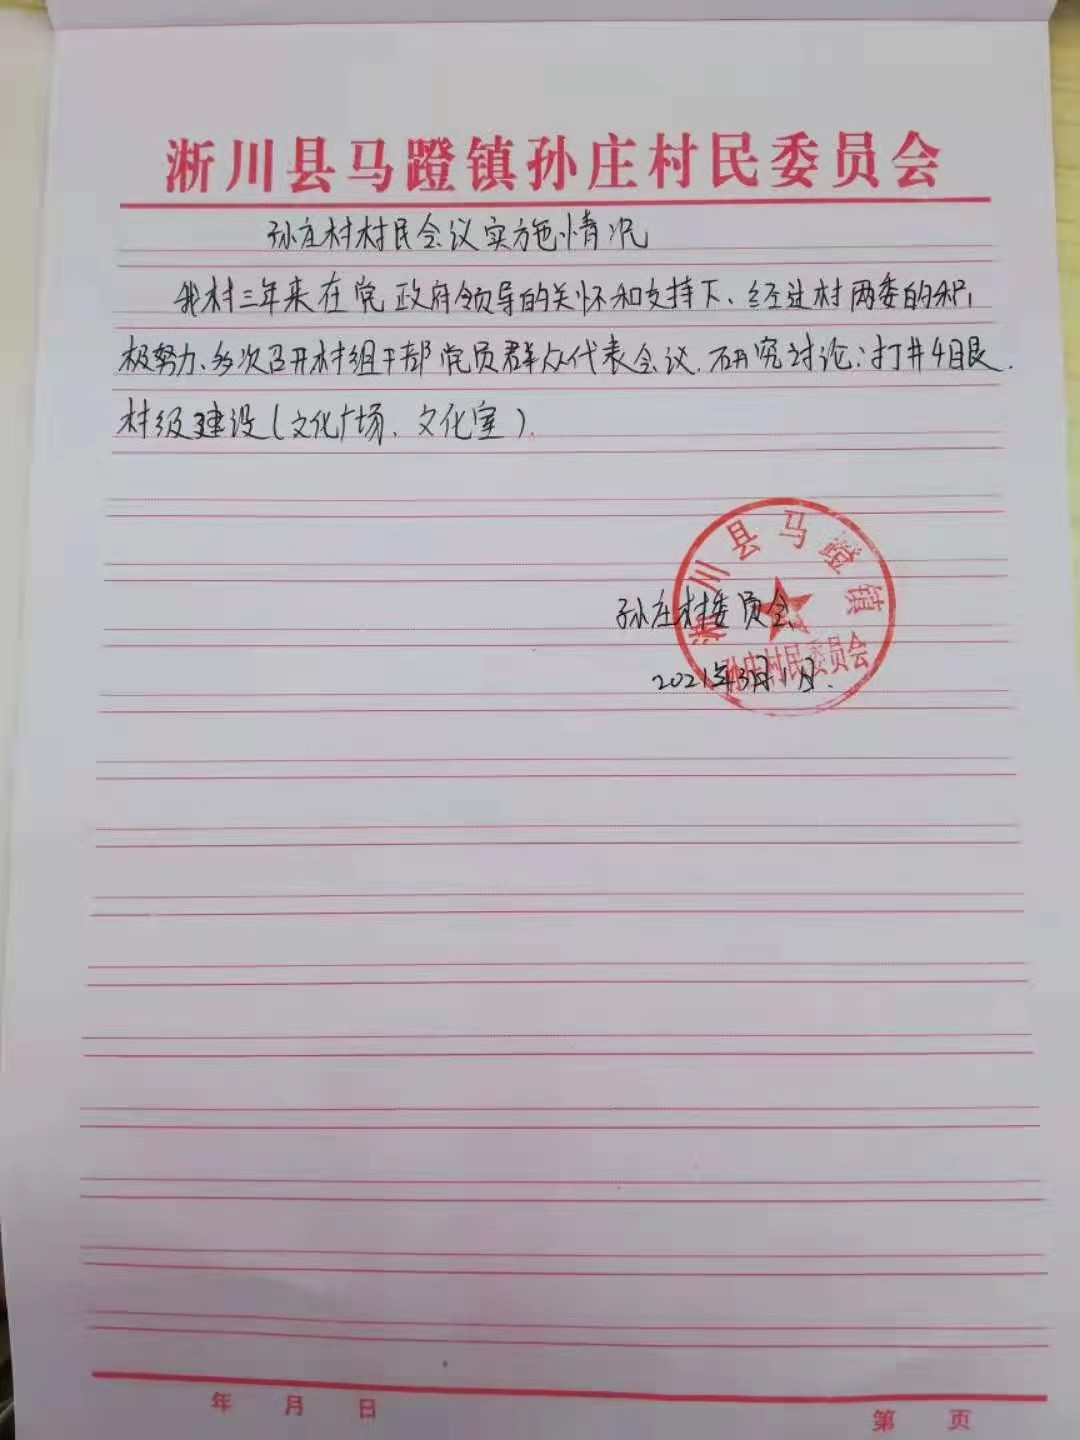 淅川县马蹬镇孙庄村民委员会
孙庄村村民会议实施情况
我村三年来在党政府领导的关怀和支持下、经过村两委的积
极努力、多次召开村组干部党员群众代表会议.研究讨论:打井4眼.
村级建设(文化广场、文化室).
淅川县马蹬镇
孙庄村民委员会
孙庄村委员会
2021年3月1日.
年 月 日
第 页